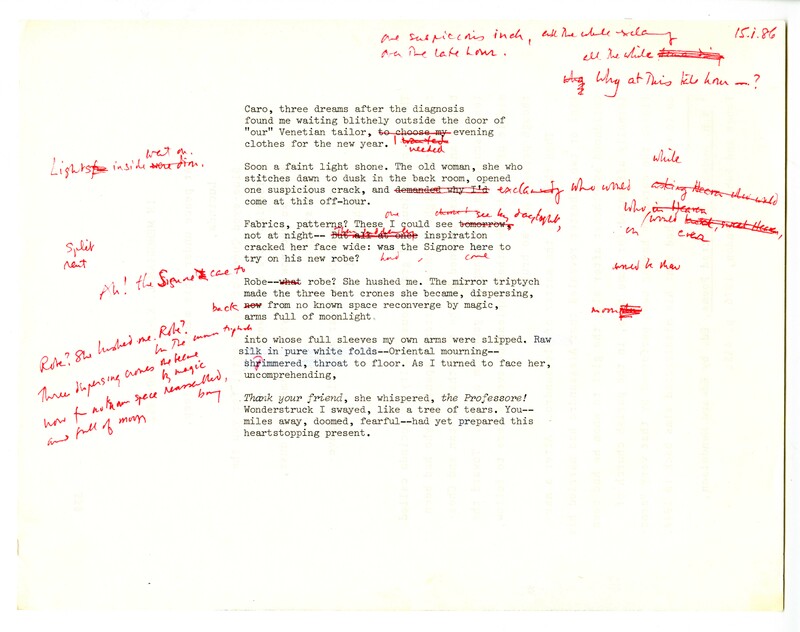 one suspicious inch, all the while exclaiming 15.i.86
over the late hour. all the while
Why at this late hour —?
Caro, three dreams after the diagnosis
found me waiting blithely outside the door of
"our" Venetian tailor, to choose my evening
clothes for the new year. I wanted
needed
went on.
Lights inside
Soon a faint light shone. The old woman, she who
stitches dawn to dusk in the back room, opened
one suspicious crack, and demanded why I'd exclaiming who would
come at this off-hour.
while
asking Heaven who would
who in Heaven
would
on
Fabrics, patterns? These I could see tomorrow,
one see by daylight,
not at night-- But all at once inspiration
cracked her face wide: was the Signore here to
try on his new robe?
had come
split
rent
Ah! the Signore came to
would be
Robe--what robe? She hushed me. The mirror triptych
made the three bent crones she became, dispersing,
back now from no known space reconverge by magic,
arms full of moonlight.
moon
Robe? She hushed me. Robe?
In the mirror triptych
Three dispersing crones she became
by magic
now from no known space reassembled,
arms full of moon
into whose full sleeves my own arms were slipped. Raw
silk in pure white folds--Oriental mourning--
shrimmered, throat to floor. As I turned to face her,
?
uncomprehending,
Thank your friend, she whispered, the Professore!
Wonderstruck I swayed, like a tree of tears. You--
miles away, doomed, fearful--had yet prepared this
heartstopping present.